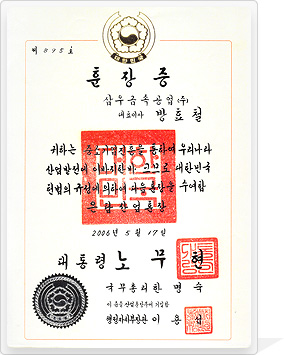 제 895 호
대한민국
훈장증
삼우금속공업(주)
대표이사 방효철
귀하는 중소기업진흥을 통하여 우리나라
산업발전에 이바지한바 크므로 대한민국
헌법의 규정에 의하여 다음 훈장을 수여함
은탑산업훈장
2006년 5월 17일
대통령 노무현
국무총리 한명숙
이 증을 산업훈장부에 기입함
행정자치부장관 이용섭